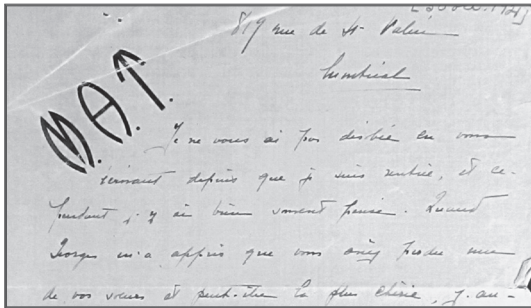 819 rue de St Valier
Montréal
M.A.T.
Je ne vous ai pas oubliée en vous
écrivant depuis que je suis rentrée, et ce-
pendant j'y ai bien souvent pensé. Quand
Georges m'a appris que vous aviez perdu une
de vos sœurs et peut-être la plus chérie, j'au-